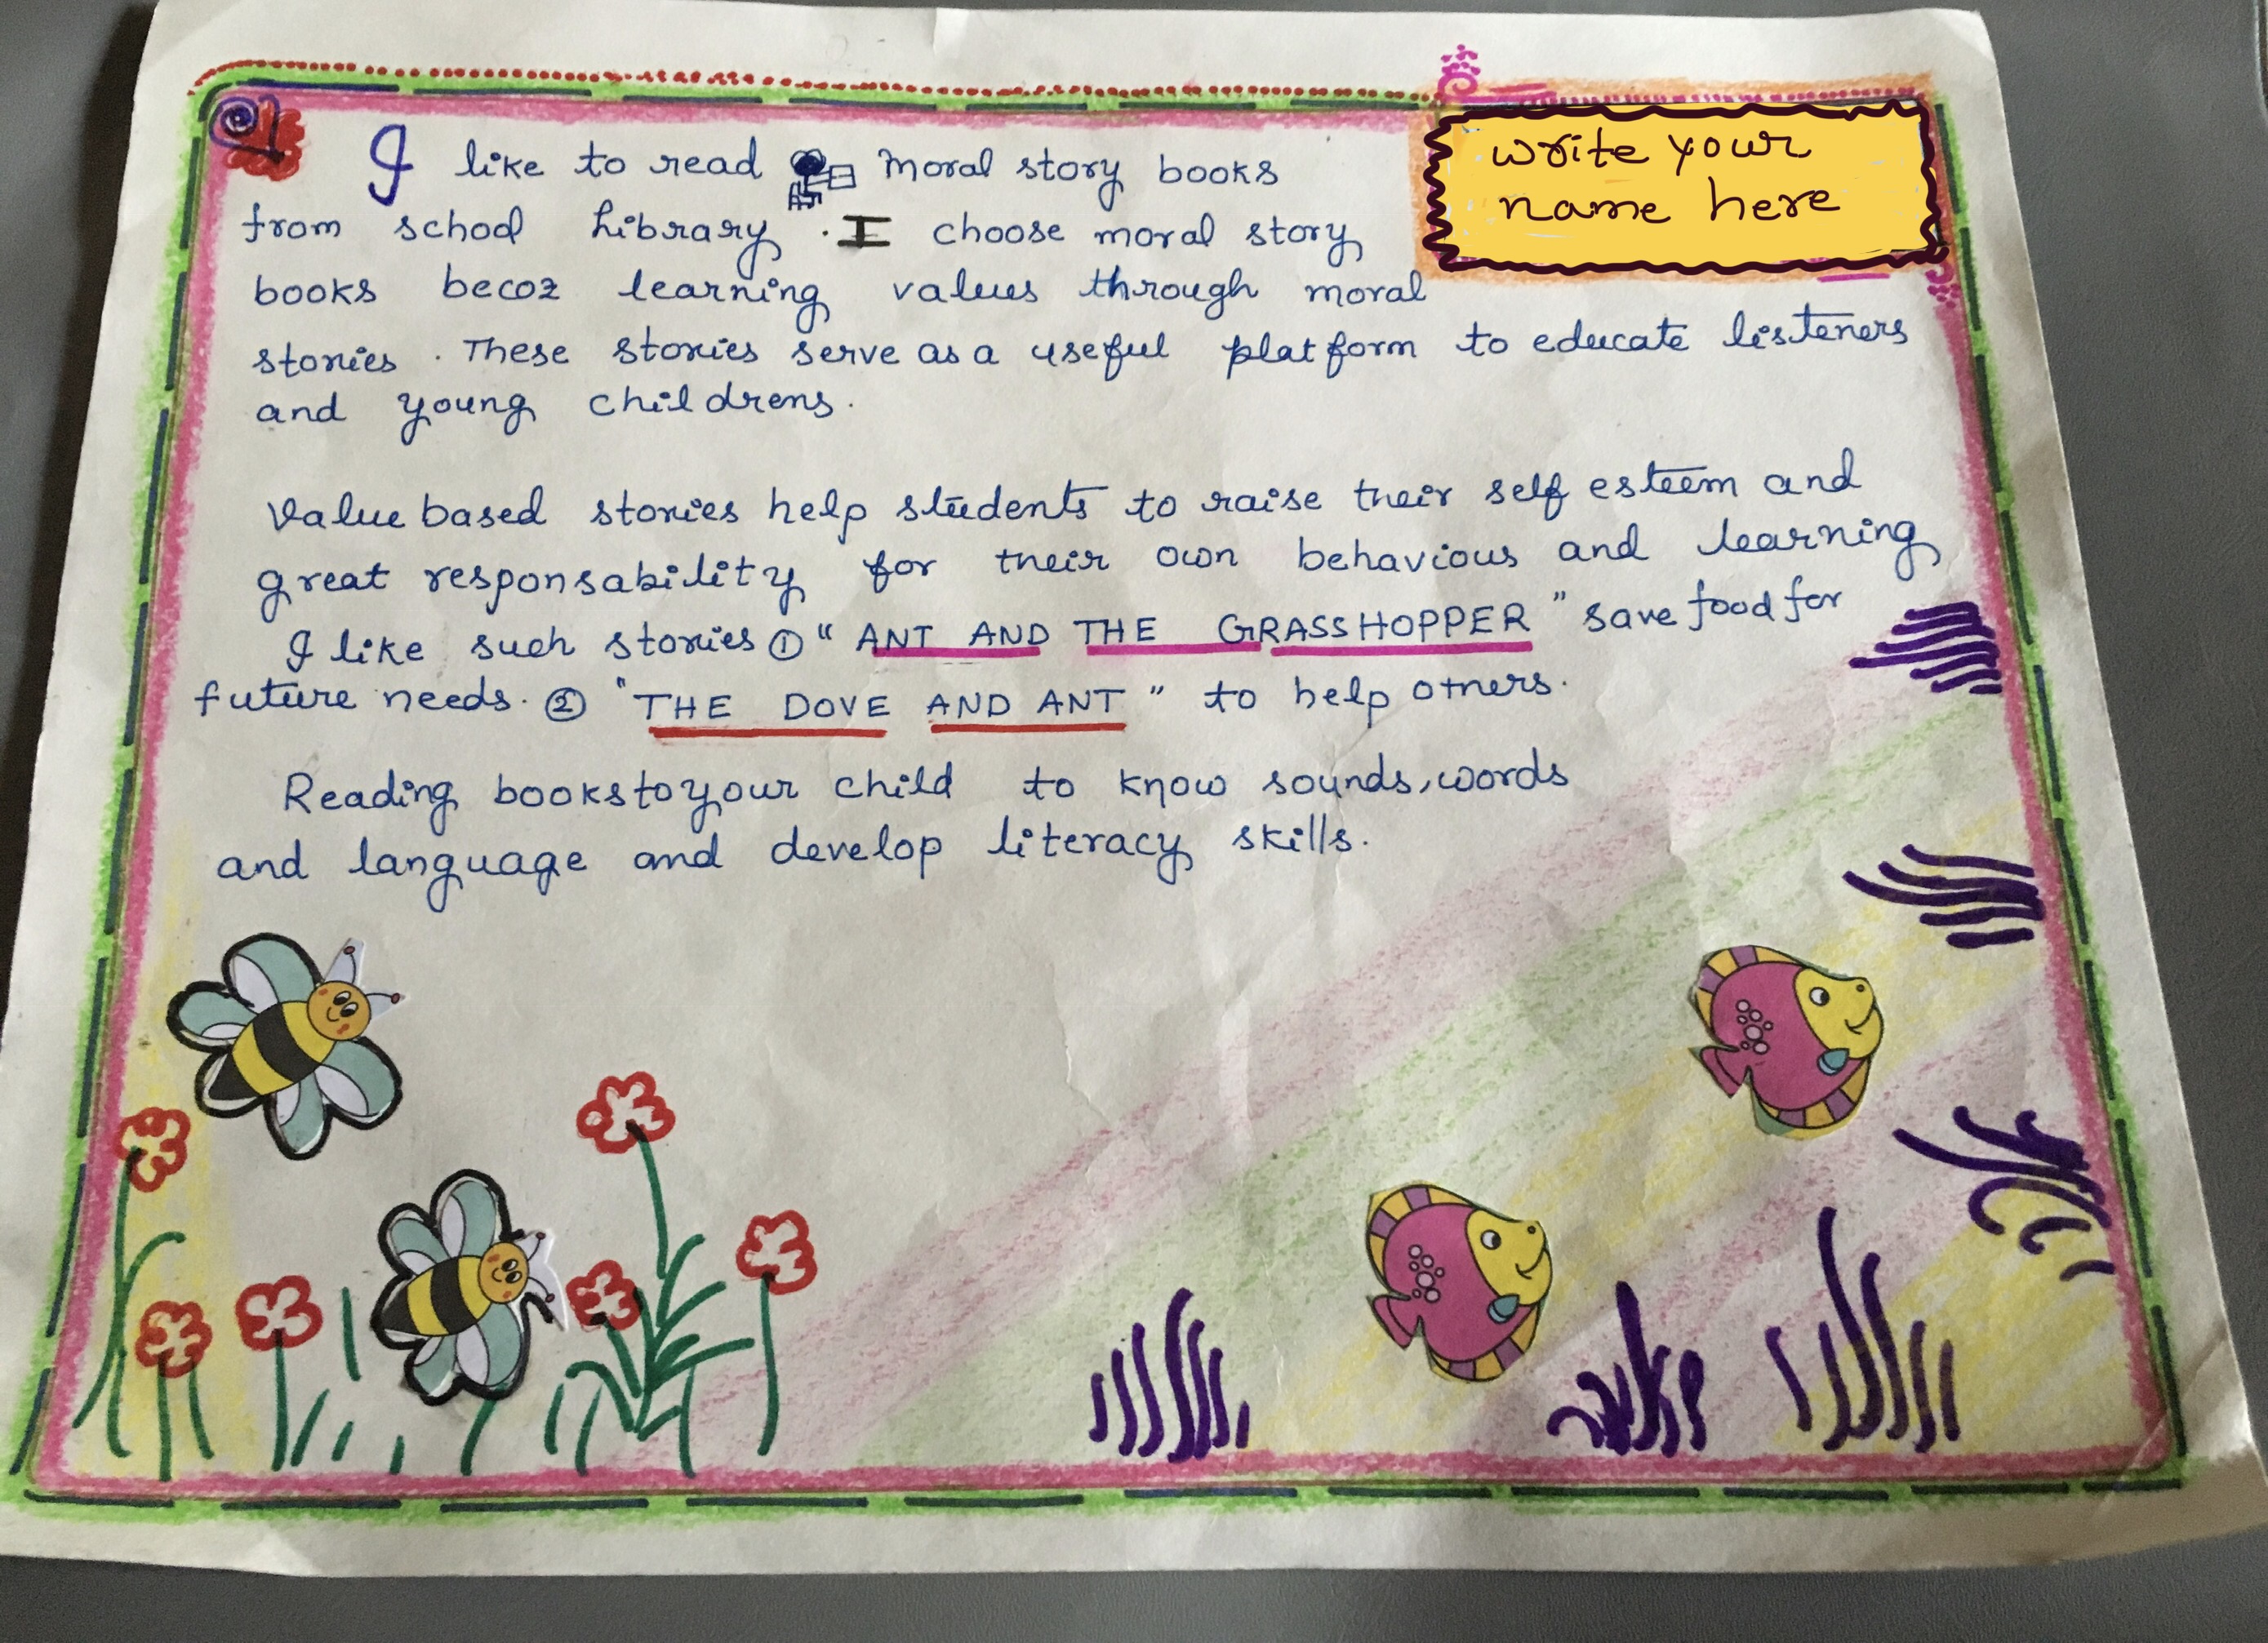 write your
name here
I like to read moral story books
from school Library. I choose moral story
books becoz learning values through moral
stories. These stories serve as a useful platform to educate listeners
and young childrens.
Value based stories help students to raise their self esteem and
great responsability for their own behavious and learning
I like such stories ① "ANT AND THE GRASSHOPPER" save food for
future needs. ② "THE DOVE AND ANT" to help others.
Reading books to your child to know sounds, words
and language and develop literacy skills.